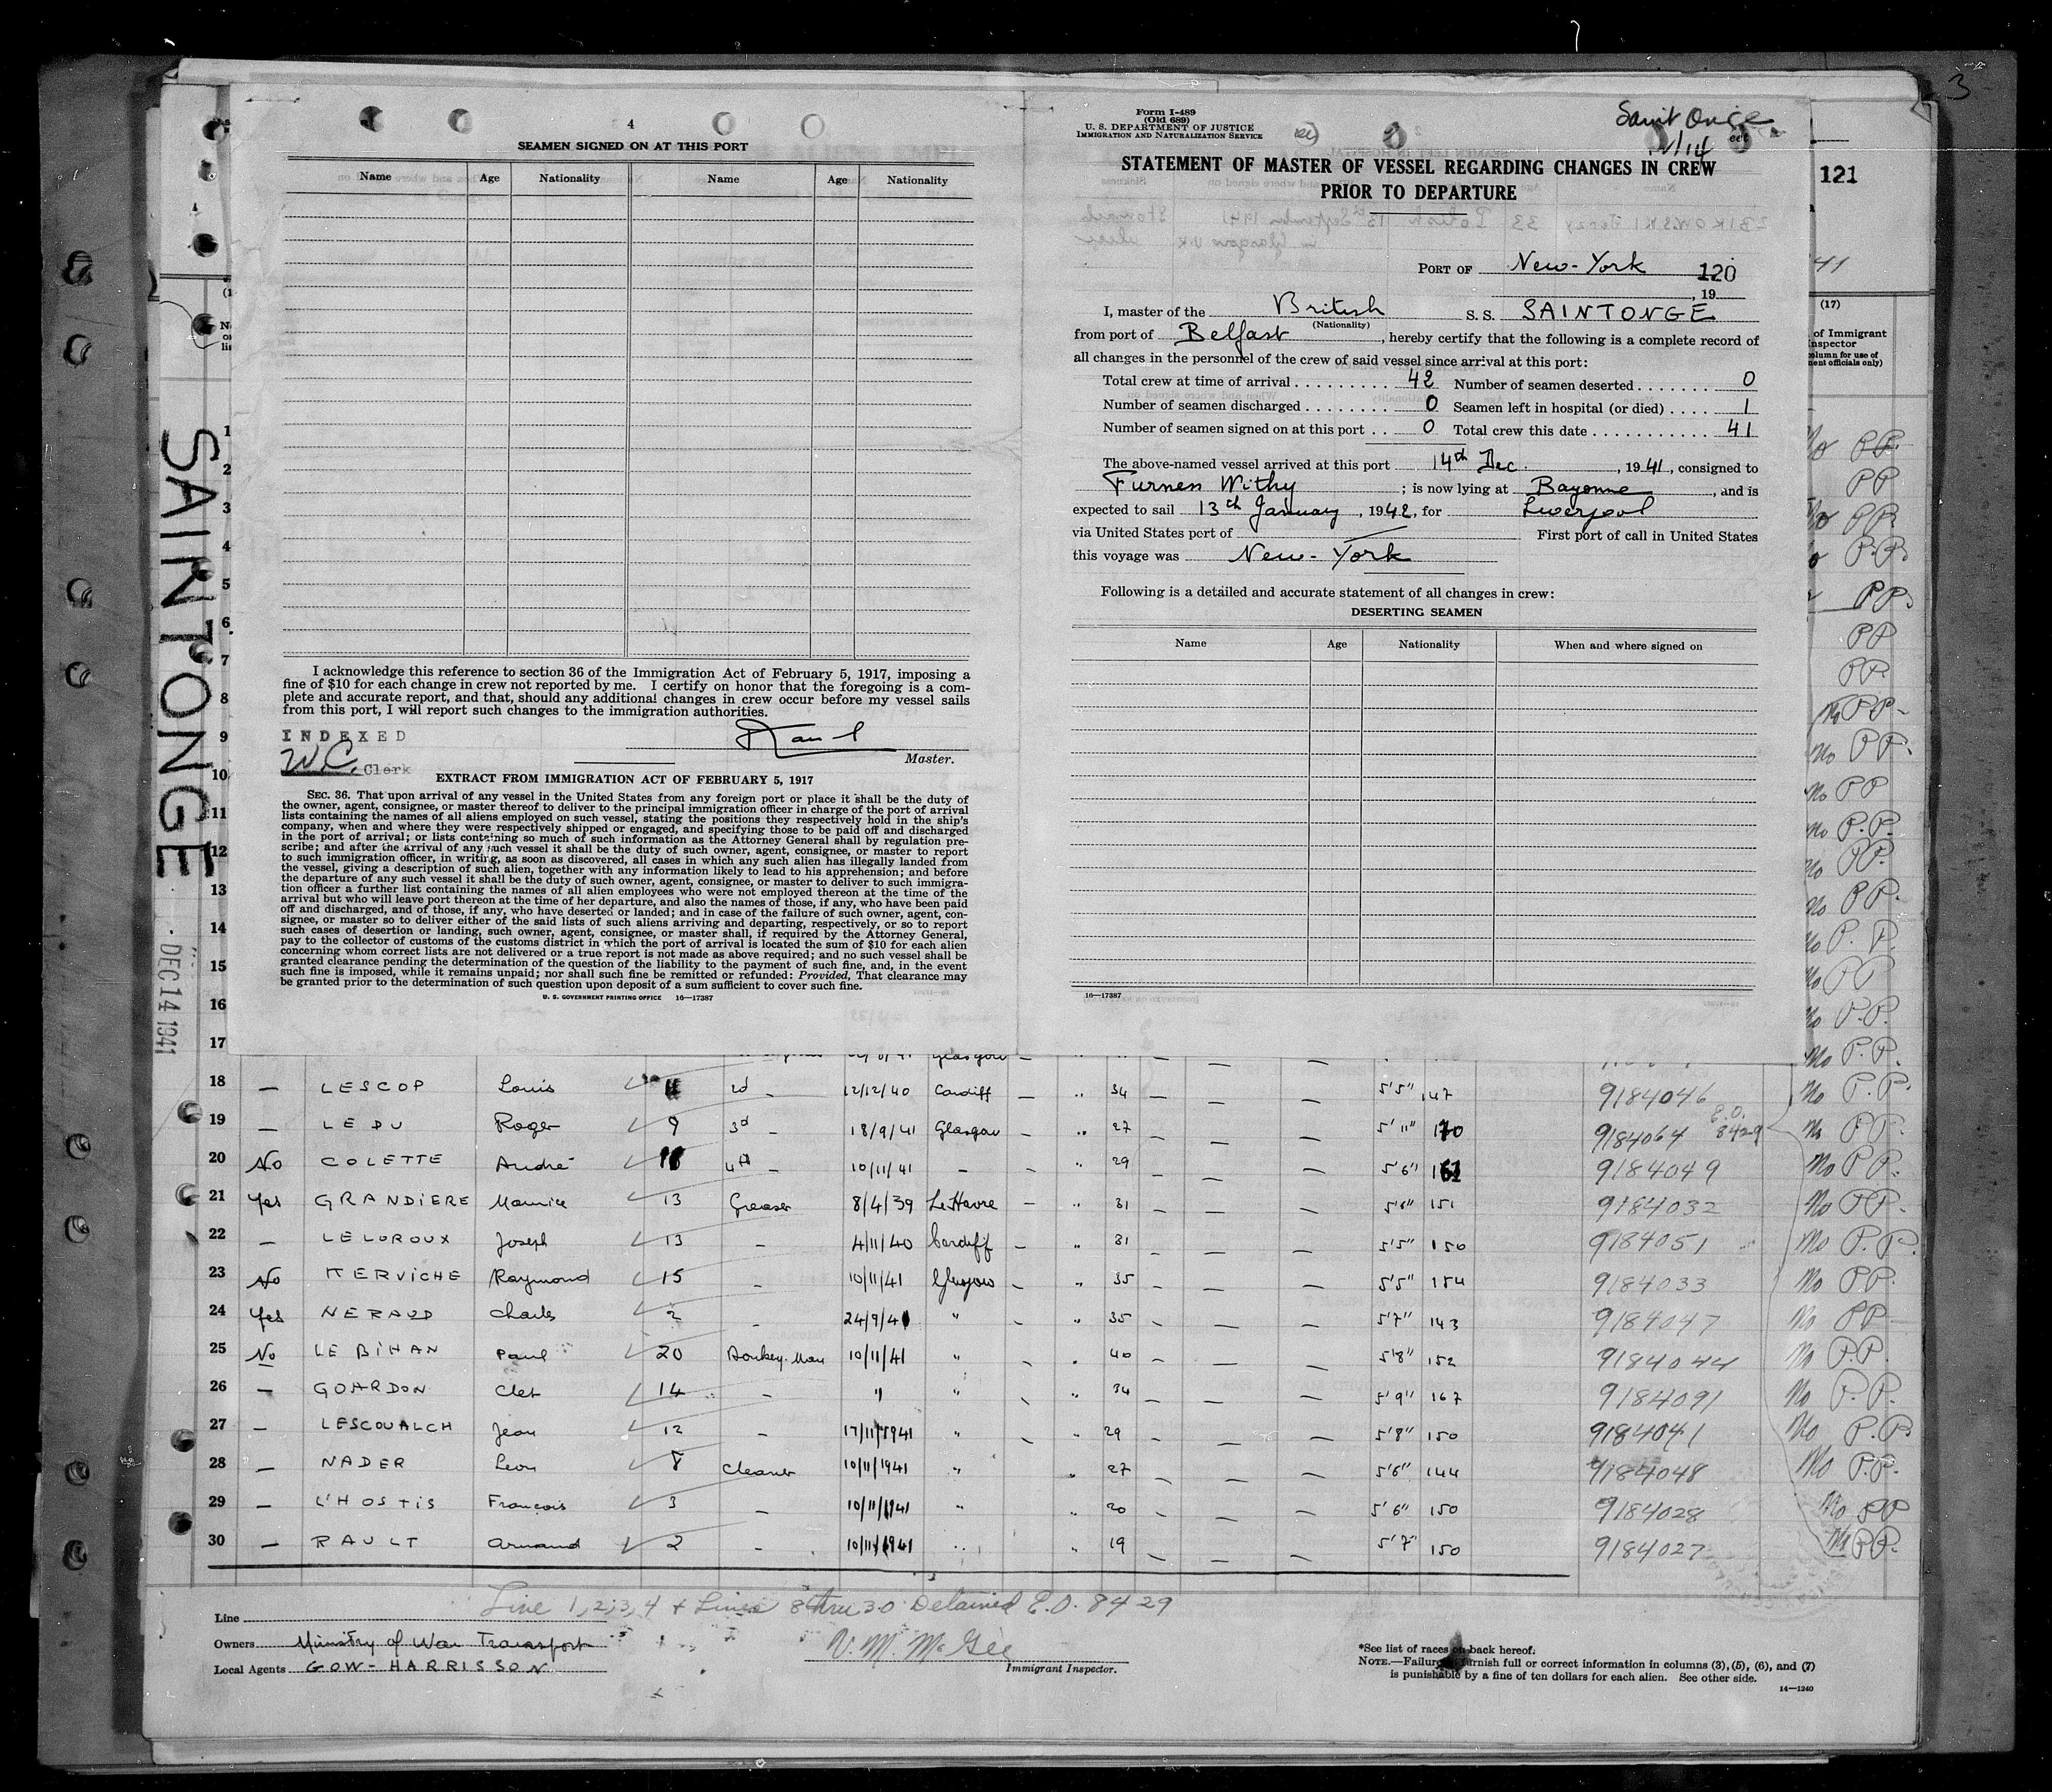 4
SEAMEN SIGNED ON AT THIS PORT
Name Age Nationality Name Age Nationality
I acknowledge this reference to section 36 of the Immigration Act of February 5, 1917, imposing a
fine of $10 for each change in crew not reported by me. I certify on honor that the foregoing is a com-
plete and accurate report, and that, should any additional changes in crew occur before my vessel sails
from this port, I will report such changes to the immigration authorities.
INDEXED
W.C. Clerk
Master.
EXTRACT FROM IMMIGRATION ACT OF FEBRUARY 5, 1917
SEC. 36. That upon arrival of any vessel in the United States from any foreign port or place it shall be the duty of
the owner, agent, consignee, or master thereof to deliver to the principal immigration officer in charge of the port of arrival
lists containing the names of all aliens employed on such vessel, stating the positions they respectively hold in the ship's
company, when and where they were respectively shipped or engaged, and specifying those to be paid off and discharged
in the port of arrival; or lists containing so much of such information as the Attorney General shall by regulation pre-
scribe; and after the arrival of any such vessel it shall be the duty of such owner, agent, consignee, or master to report
to such immigration officer, in writing, as soon as discovered, all cases in which any such alien has illegally landed from
the vessel, giving a description of such alien, together with any information likely to lead to his apprehension; and before
the departure of any such vessel it shall be the duty of such owner, agent, consignee, or master to deliver to such immigra-
tion officer a further list containing the names of all alien employees who were not employed thereon at the time of the
arrival but who will leave port thereon at the time of her departure, and also the names of those, if any, who have been paid
off and discharged, and of those, if any, who have deserted or landed; and in case of the failure of such owner, agent, con-
signee, or master so to deliver either of the said lists of such aliens arriving and departing, respectively, or so to report
such cases of desertion or landing, such owner, agent, consignee, or master shall, if required by the Attorney General,
pay to the collector of customs of the customs district in which the port of arrival is located the sum of $10 for each alien
concerning whom correct lists are not delivered or a true report is not made as above required; and no such vessel shall be
granted clearance pending the determination of the question of the liability to the payment of such fine, and, in the event
such fine is imposed, while it remains unpaid; nor shall such fine be remitted or refunded: Provided, That clearance may
be granted prior to the determination of such question upon deposit of a sum sufficient to cover such fine.
U. S. GOVERNMENT PRINTING OFFICE 16—17387
Form I-489
(Old 689)
U. S. DEPARTMENT OF JUSTICE
IMMIGRATION AND NATURALIZATION SERVICE
Saint Onge
1/14
STATEMENT OF MASTER OF VESSEL REGARDING CHANGES IN CREW
PRIOR TO DEPARTURE
PORT OF New-York 120
, 19
I, master of the British S. S. SAINTONGE
(Nationality)
from port of Belfast, hereby certify that the following is a complete record of
all changes in the personnel of the crew of said vessel since arrival at this port:
Total crew at time of arrival 42 Number of seamen deserted 0
Number of seamen discharged 0 Seamen left in hospital (or died) 1
Number of seamen signed on at this port 0 Total crew this date 41
The above-named vessel arrived at this port 14th Dec., 1941, consigned to
Furness Withy; is now lying at Bayonne, and is
expected to sail 13th January, 1942, for Liverpool
via United States port of — First port of call in United States
this voyage was New-York
Following is a detailed and accurate statement of all changes in crew:
DESERTING SEAMEN
Name Age Nationality When and where signed on
16—17387
3
121
41
(17)
of Immigrant
Inspector
column for use of
ment officials only)
SAINTONGE
DEC 14 1941
1
2
3
4
5
6
7
8
9
10
11
12
13
14
15
16
17
18 — LESCOP Louis 2d 12/12/40 Cardiff — " 34 — — — 5'5" 147 9184046 No P.P.
19 — LE DU Roger 9 3d 18/9/41 Glasgow — " 27 — — — 5'11" 170 9184064 E.O. 8429 No P.P.
20 No COLETTE André 4th 10/11/41 — — " 29 — — — 5'6" 9184049 No P.P.
21 Yes GRANDIERE Maurice 13 Greaser 8/4/39 Le Havre — " 31 — — — 151 9184032 No P.P.
22 — LELOROUX Joseph 13 — 4/11/40 Cardiff — " 31 — — — 5'5" 150 9184051 No P.P.
23 No KERVICHE Raymond 15 — 10/11/41 Glasgow — " 35 — — — 5'5" 154 9184033 No P.P.
24 Yes NERAUD Charles 2 — 24/9/41 " — " 35 — — — 5'7" 143 9184047 No P.P.
25 No LE BIHAN Paul 20 Donkey-Man 10/11/41 " — " 40 — — — 5'8" 152 9184044 No P.P.
26 — GOARDON Clet 14 — " " — " 34 — — — 5'9" 167 9184091 No P.P.
27 — LESCOUALCH Jean 12 — 17/11/1941 " — " 29 — — — 5'8" 150 9184041 No P.P.
28 — NADER Leon 8 Cleaner 10/11/1941 " " 27 — — — 5'6" 144 9184048 No P.P.
29 — L'HOSTIS François 3 — 10/11/1941 " " 20 — — — 5'6" 150 9184028 No P.P.
30 — RAULT Armand 2 — 10/11/1941 " " 19 — — — 5'7" 150 9184027 No P.P.
Line 1, 2, 3, 4 + Lines 8 thru 30 Detained E.O. 8429
Line
Owners Ministry of War Transport
Local Agents GOW-HARRISSON
V. M. McGee
Immigrant Inspector.
*See list of races on back hereof.
NOTE.—Failure to furnish full or correct information in columns (3), (5), (6), and (7)
is punishable by a fine of ten dollars for each alien. See other side.
14—1240